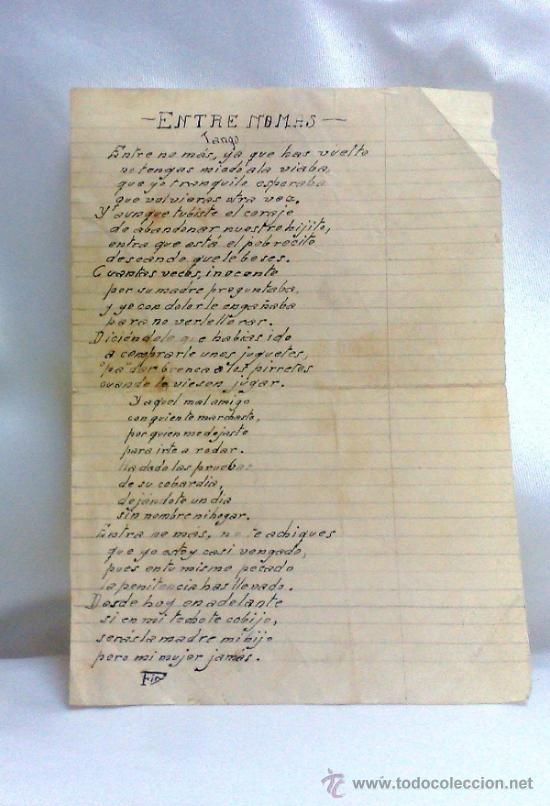 - ENTRE NOMAS -
Tango
Entre no más, ya que has vuelto
no tengas miedo a la viaba,
que yo tranquilo esperaba
que volvieras otra vez.
Y aunque tubiste el coraje
de abandonar nuestro hijito,
entra que está el pobrecito
deseando que le beses.
Cuantas veces, inocente
por su madre preguntaba,
y yo con dolor le engañaba
para no verle llorar.
Diciéndole que habias ido
a comprarle unos juguetes,
"pa" dar bronca a los pirretes
cuando le viesen jugar.
Y aquel mal amigo
con quien te marchaste,
por quien me dejaste
para irte a rodar.
Ha dado las pruebas
de su cobardia,
dejándote un dia
sin nombre ni hogar.
Entra no más, no te achiques
que yo estoy casi vengado,
pues en tu mismo pecado
la penitencia has llevado.
Desde hoy en adelante
si en mi techo te cobijo,
serás la madre mi hijo
pero mi mujer jamás.
Fin
www.todocoleccion.net